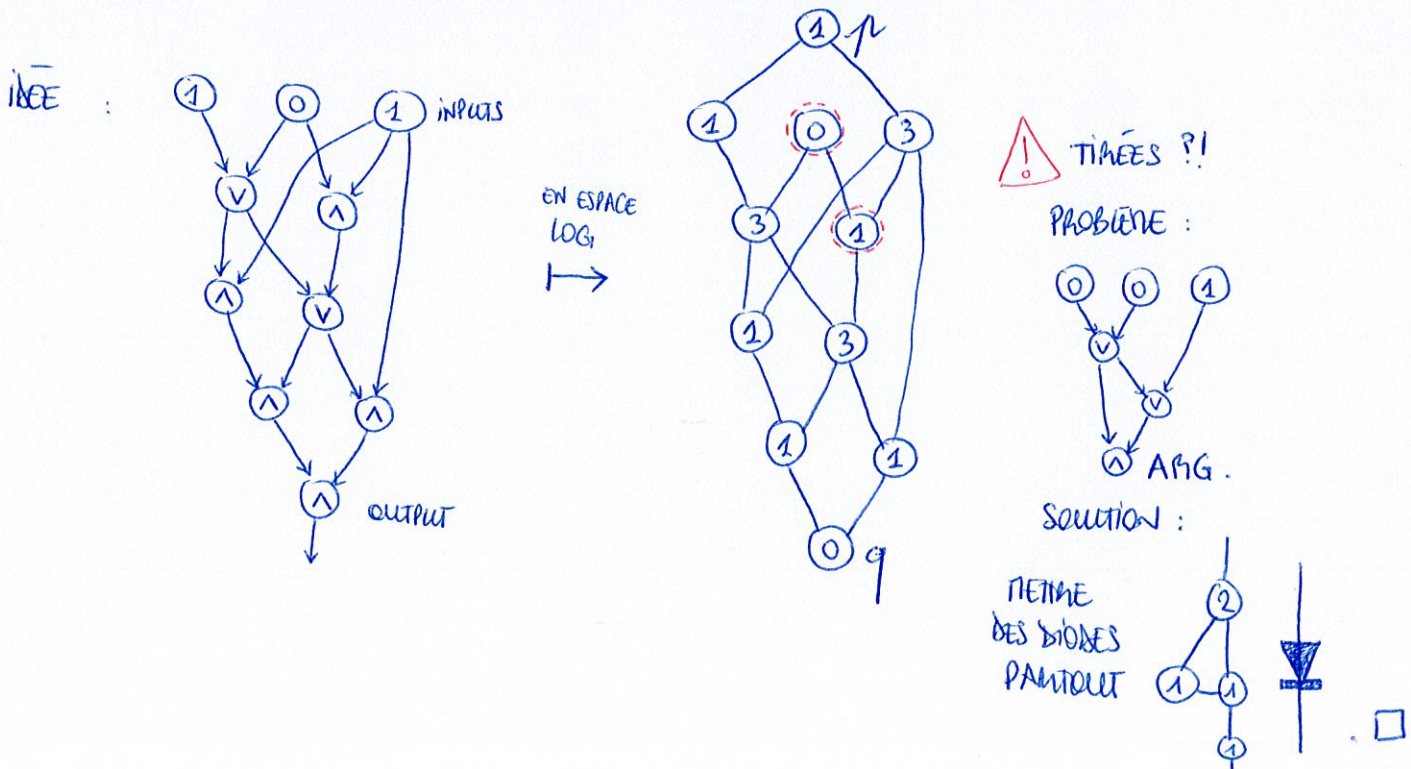 IDÉE :
1 0 1 INPUTS
∨ ∧
∧ ∨
∧ ∧
∧ OUTPUT
EN ESPACE
LOG
↦
1 p
1 0 3
3 1
1 3
1 1
0 q
! TIRÉES ?!
PROBLÈME :
0 0 1
∨
∨
∧ ARG.
SOLUTION :
METTRE
DES DIODES
PARTOUT
2
1 1
1
. □